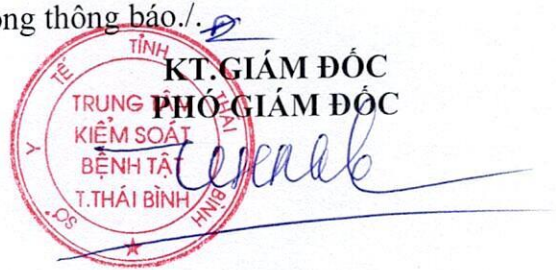 ong thông báo./.
KT.GIÁM ĐỐC
PHÓ GIÁM ĐỐC
SỞ Y TẾ TỈNH THÁI BÌNH
TRUNG TÂM
KIỂM SOÁT
BỆNH TẬT
T.THÁI BÌNH